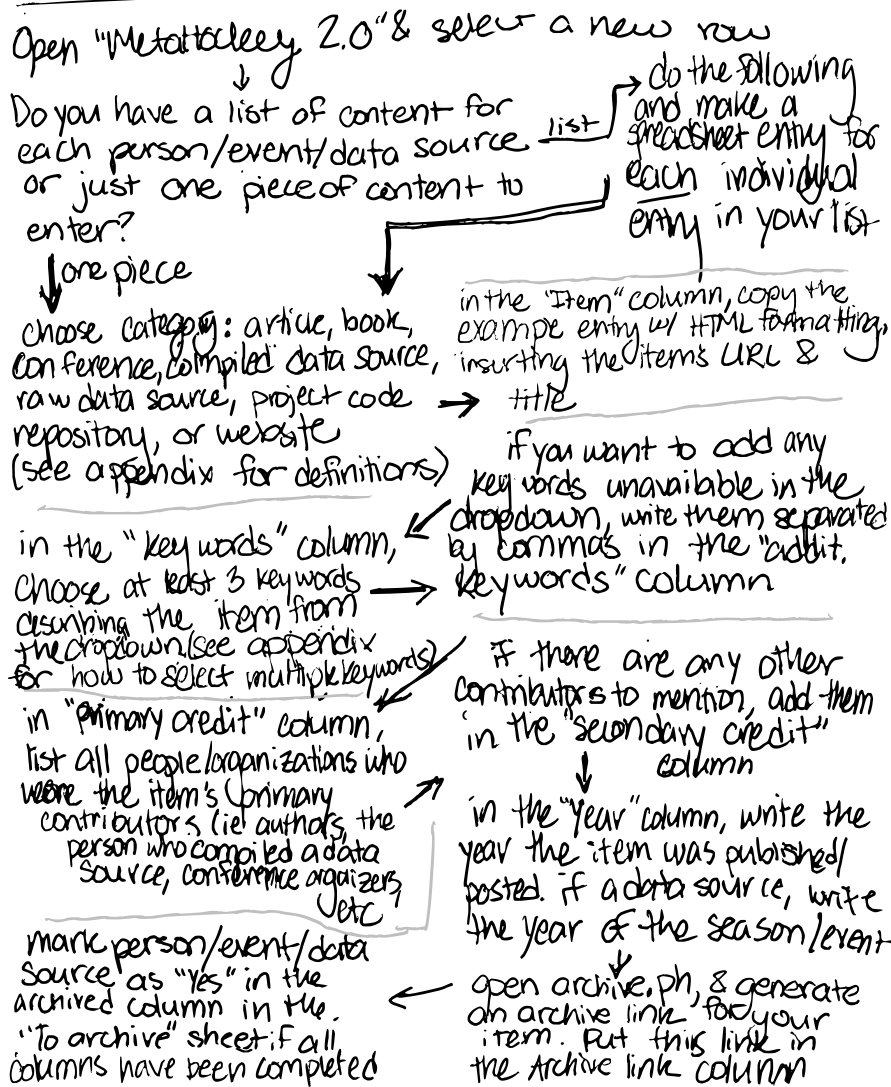 Open "Metahockey 2.0" & select a new row
Do you have a list of content for
each person/event/data source
or just one piece of content to
enter?
list
do the following
and make a
spreadsheet entry for
each individual
entry in your list
one piece
choose category: article, book,
conference, compiled data source,
raw data source, project code
repository, or website
(see appendix for definitions)
in the "Item" column, copy the
example entry w/ HTML formatting,
insurting the item's URL &
title
in the "keywords" column,
choose at least 3 keywords
describing the item from
the dropdown (see appendix
for how to select multiple keywords)
if you want to add any
key words unavailable in the
dropdown, write them separated
by commas in the "addit.
keywords" column
in "primary credit" column,
list all people/organizations who
were the item's primary
contributors (ie authors, the
person who compiled a data
source, conference orgaizers,
etc
if there are any other
contributors to mention, add them
in the "secondary credit"
column
in the "Year" column, write the
year the item was published/
posted. if a data source, write
the year of the season/event
open archive.ph, & generate
an archive link for your
item. Put this link in
the Archive link column
mark person/event/data
source as "Yes" in the
archived column in the
"To archive" sheet if all
columns have been completed